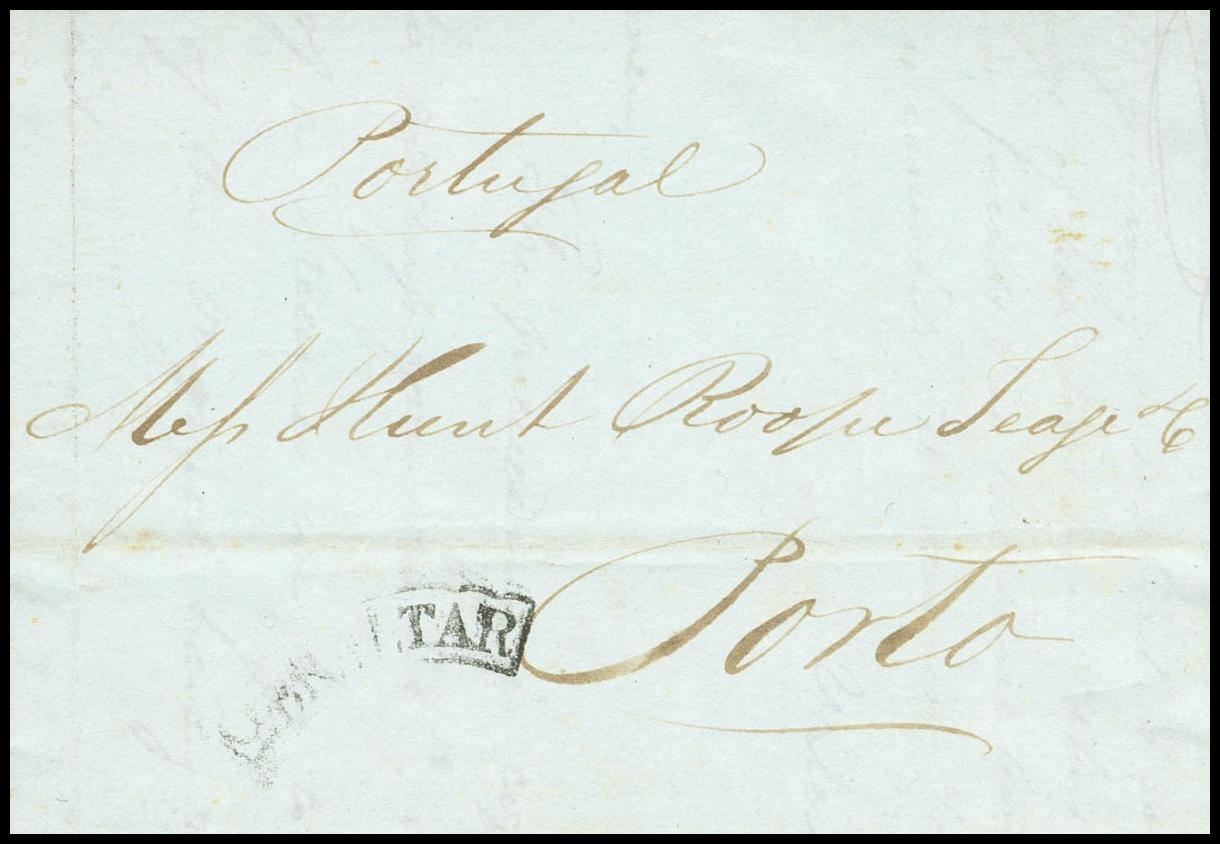 Portugal
Mess Hunt Roope Teage & C
TAR
Porto